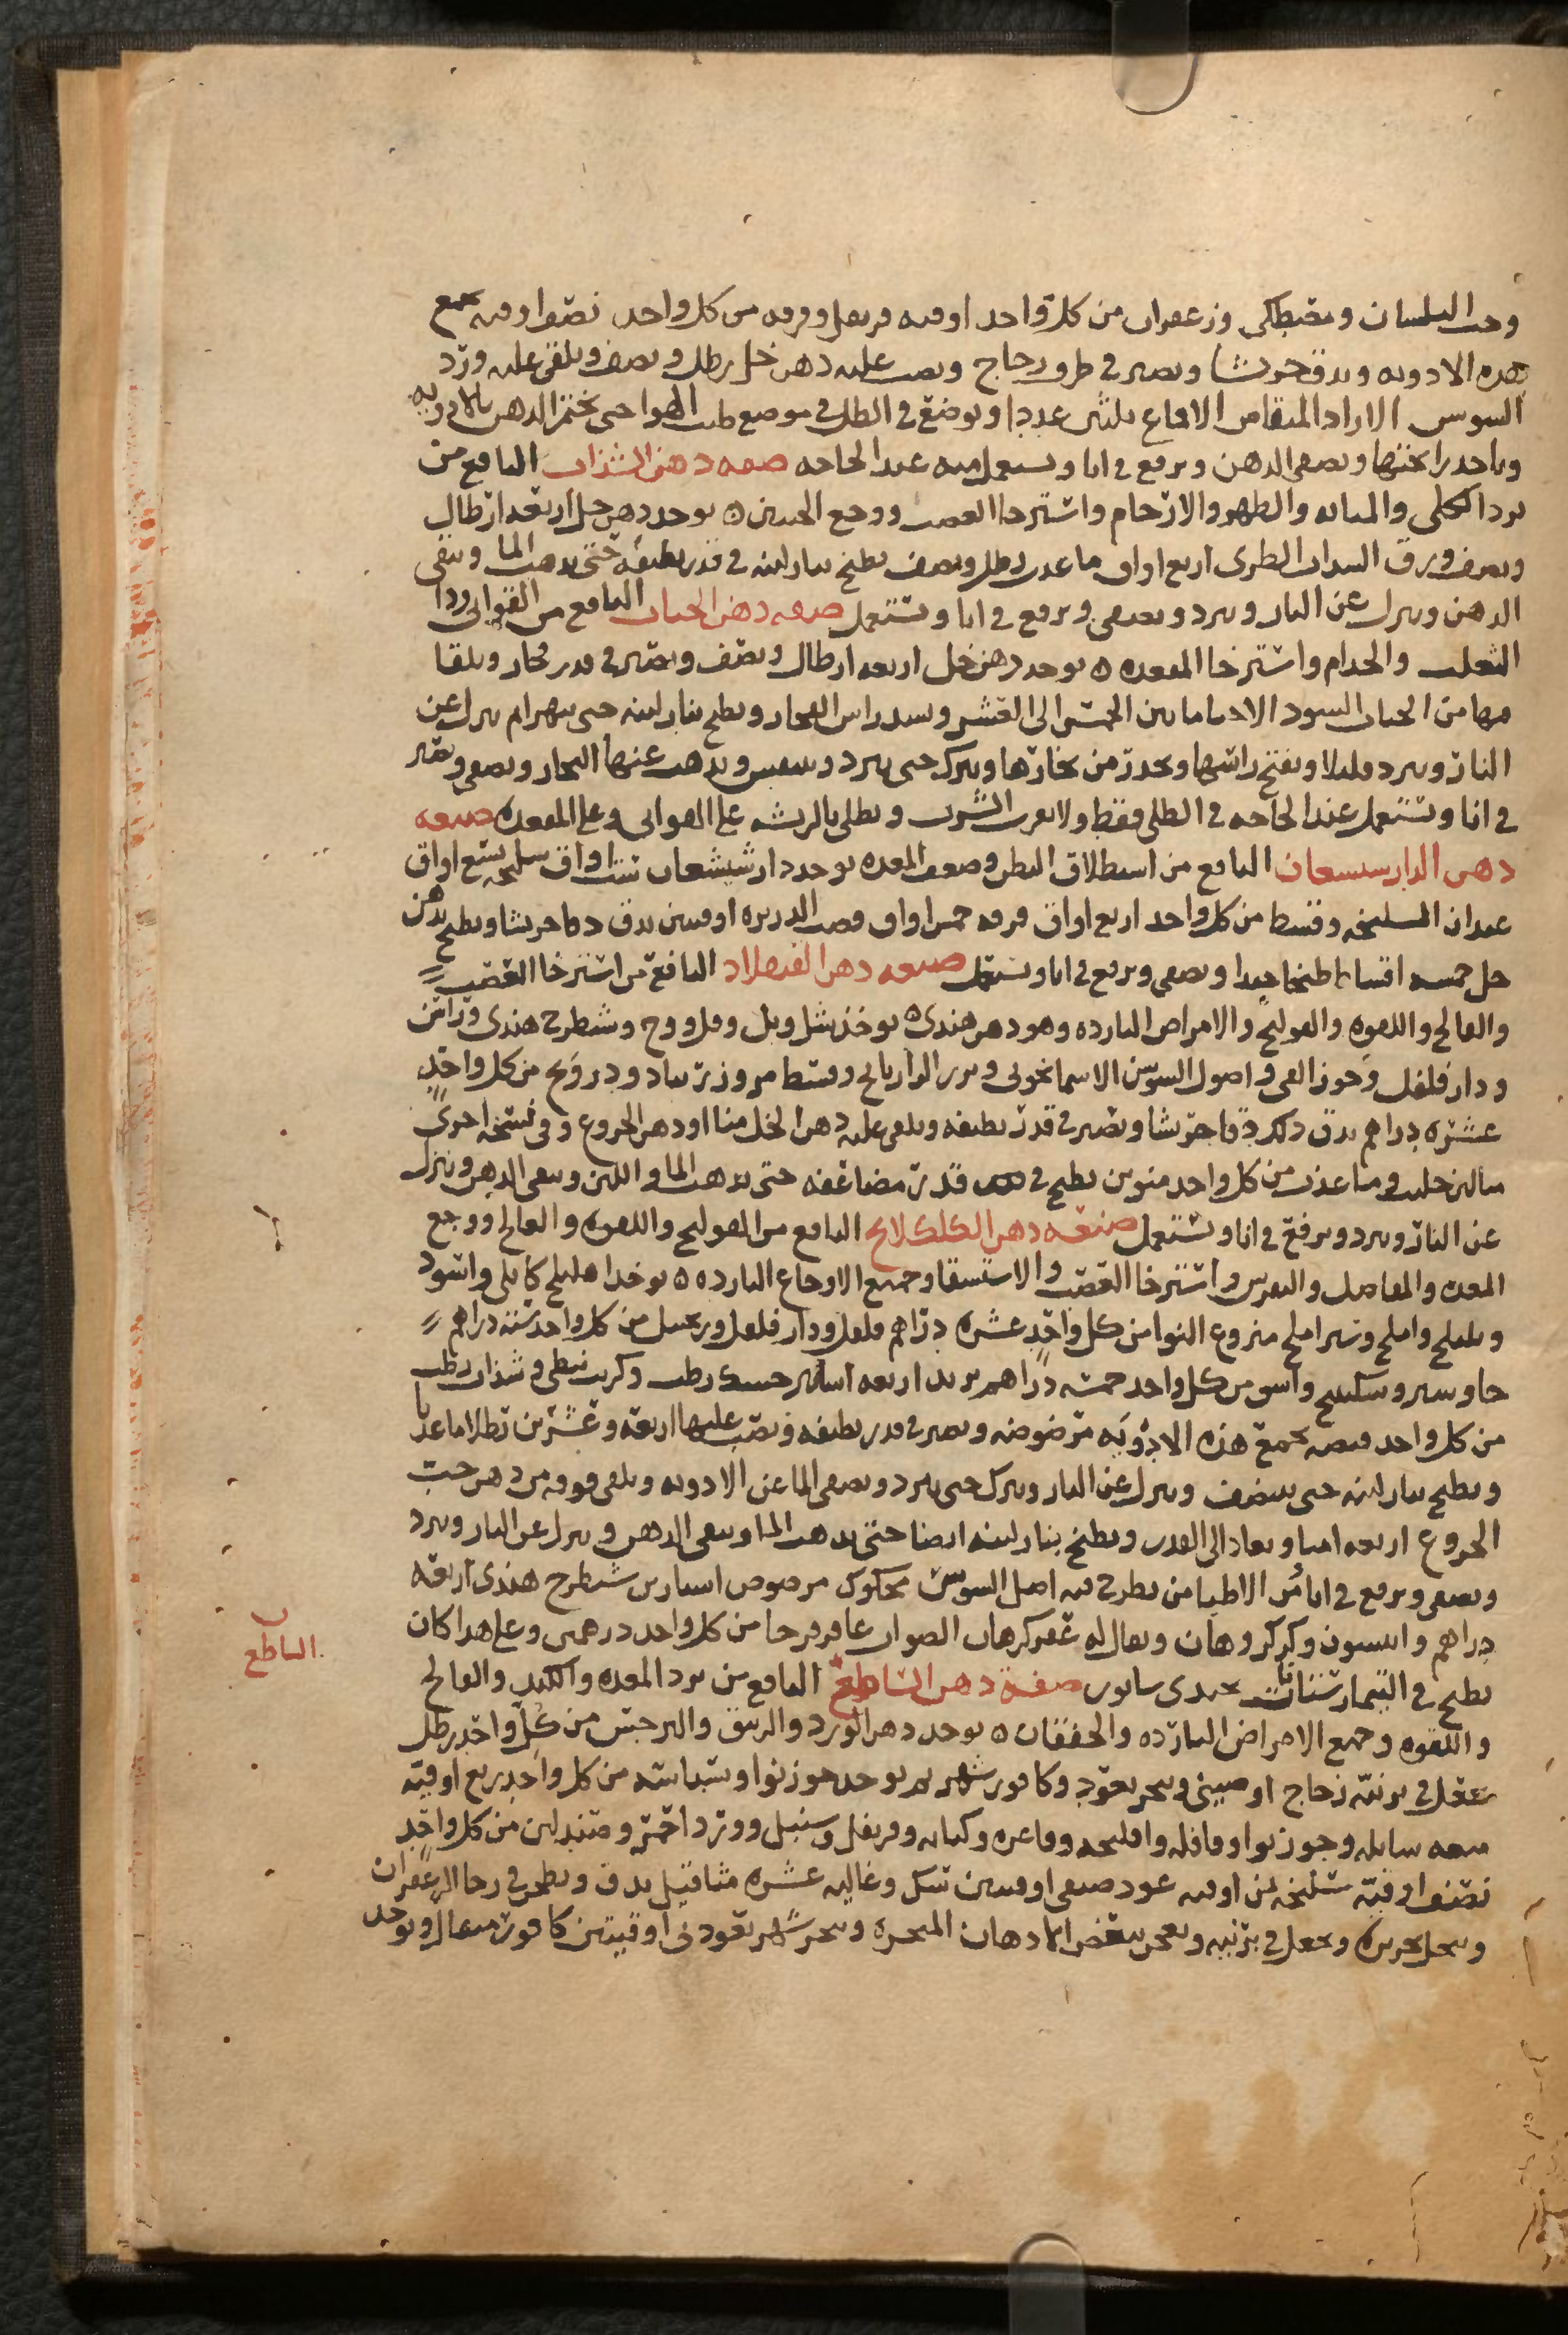 وحب البلسان ومصطكى وزعفران من كل واحد اوقيه قرنفل وقرفه من كل واحد نصف اوقيه تجمع
هذه الادويه وتدق جريشا وتصير في ظرف زجاج ويصب عليه دهن خل رطل ونصف ويلقى عليه ورد
السوسن الازاد المنقا من الاقماع ثلثين عددا ويوضع في الظل في موضع طيب الهوا حتى يختمر الدهن بالادويه
وياخذ رائحتها ويصفى الدهن ويرفع في انا ويستعمل منه عند الحاجه صفه دهن السذاب النافع من
برد الكلى والمثانه والظهر والارحام واسترخا العصب ووجع الجنبين ه يوخذ دهن حل اربعه ارطال
ونصف ورق السداب الطرى اربع اواق ما عذب رطل ونصف يطبخ بنار لينه في قدر نظيفه حتى يذهب الما ويبقى
الدهن وينزل عن النار ويبرد ويصفى ويرفع في انا ويستعمل صفه دهن الحيات النافع من القوابى ودا
الثعلب والجذام واسترخا المقعده ه يوخذ دهن خل اربعه ارطال ونصف ويصير في قدر فخار ويلقا
فيها من الحيات السود الاحيا ما بين الخمس الى العشر ويسد راس الفخار ويطبخ بنار لينه حتى تتهرا ثم ينزل عن
النار ويبرد قليلا ويفتح راسها ويحذر من بخارها ويترك حتى يبرد ويتنفس ويذهب عنها البخار ويصفى ويصير
في انا ويستعمل عند الحاجه في الطلى فقط ولا يقرب الشرب ويطلى بالريشه على القوابى وعلى المقعده صفه
دهن الدارسيسعان النافع من استطلاق البطن وضعف المعده يوخذ دارشيشعان ست اواق سليخه تسع اواق
عيدان السليخه وقسط من كل واحد اربع اواق قرفه خمس اواق وقصب الذريره اوقيتين يدق دقا جريشا ويطبخ بدهن
حل خمسه اقساط طبخا جيدا ويصفى ويرفع في انا ويستعمل صفه دهن القيصلاد النافع من استرخا العصب
والفالج واللقوه والقولنج والامراض البارده وهو دهن هندى ه يوخذ شل وبل وفل ووج وشيطرج هندى وراسن
ودارفلفل وجوز القى واصول السوسن الاسمانجونى وبزر الرازيانج وقسط مر وزرنباد ودرونج من كل واحد
عشره دراهم يدق ذلك دقا جريشا ويصير في قدر نظيفه ويلقى عليه دهن الخل منا او دهن الخروع وفى نسخه اخرى
من لبن حليب وما عذب من كل واحد منوين يطبخ في قدر مضاعفه حتى يذهب الما واللبن ويبقى الدهن وينزل
عن النار ويبرد ويرفع في انا ويستعمل صنعه دهن الكلكلانج النافع من القولنج واللقوه والفالج ووجع
المعده والمفاصل والنقرس واسترخا العصب والاستسقا وجميع الاوجاع البارده ه يوخذ اهليلج كابلى واسود
وبليلج واملج وشيراملج منزوع النوا من كل واحد عشره دراهم فلفل ودارفلفل وزنجبيل من كل واحد سته دراهم
جاوشير وسكبينج من كل واحد خمسه دراهم تربد اربعه اساتير حسك رطب وكرنب نبطى وسذاب رطب
من كل واحد قبضه تجمع هذه الادويه مرضوضه وتصير في قدر نظيفه ويصب عليها اربعه وعشرين رطلا ما عذبا
ويطبخ بنار لينه حتى ينتصف وينزل عن النار ويترك حتى يبرد ويصفى الما عن الادويه ويلقى فوقه من دهن حب
الخروع اربعه امنا ويعاد الى القدر ويطبخ بنار لينه ايضا حتى يذهب الما ويبقى الدهن وينزل عن النار ويبرد
ويصفى ويرفع في انا من الاطبا من يطرح فيه اصل السوسن محكوك مرضوض استارين شيطرج هندى اربعه
دراهم وانيسون وكركروهان ويقال له عقركرهان الصواب عاقرقرحا من كل واحد درهمى وعلى هذا كان
يطبخ في البيمارستانات جندى سابور صفة دهن الساطع النافع من برد المعده والكبد والفالج
واللقوه وجميع الامراض البارده والخفقان ه يوخذ دهن الورد والزنبق والنرجس من كل واحد رطل
تجعل في برنيه زجاج او صينى ويبخر بعود وكافور شهر ثم يوخذ جوزبوا وبسباسه من كل واحد ربع اوقيه
ميعه سايله وجوزبوا وقاقله وافلنجه وفاغره وكبابه وقرنفل وسنبل وورد احمر وصندلين من كل واحد
نصف اوقيه سليخه من اوقيه عود صنفى اوقيتين سك وغاليه عشره مثاقيل يدق ويطحن في رحا الزعفران
وينخل بحريره ويجعل في برنيه ويعجن ببعض الادهان المبخره ويبخر شهر بعود نى اوقيتين كافور مثقال ويوخذ
الساطع